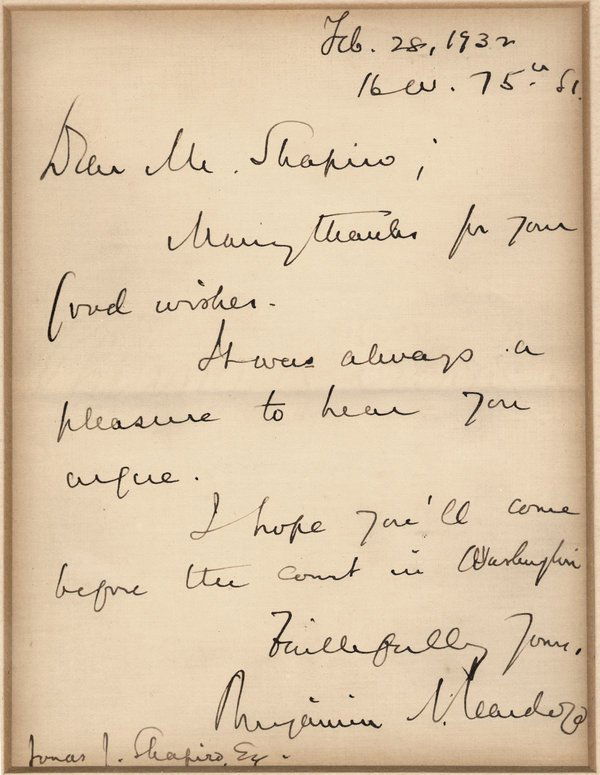 Feb. 28, 1932
16 W. 75th St.
Dear Mr. Shapiro;
Many thanks for your
good wishes.
It was always a
pleasure to hear you
argue.
I hope you'll come
before the court in Washington
Faithfully yours,
Benjamin N. Cardozo
Jonas J. Shapiro, Esq.